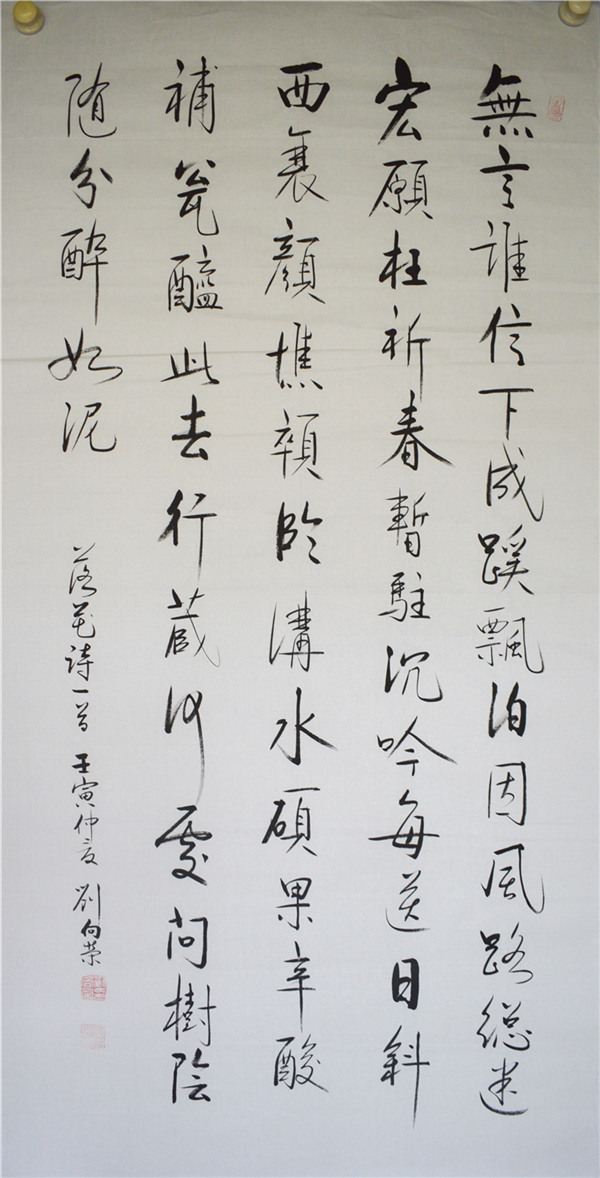 無言誰信下成蹊飄泊因風路總迷
宏願枉祈春暫駐沉吟每送日斜
西衰顏憔顇臨溝水碩果辛酸
補瓮醯此去行藏何處問樹陰
随分醉如泥
落花詩一首 壬寅仲夏 劉向荣